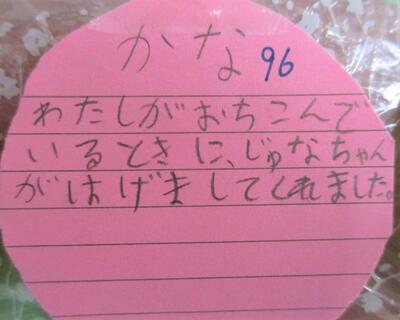 かな 96
わたしがおちこんで
いるときに、じゅなちゃん
がはげましてくれました。